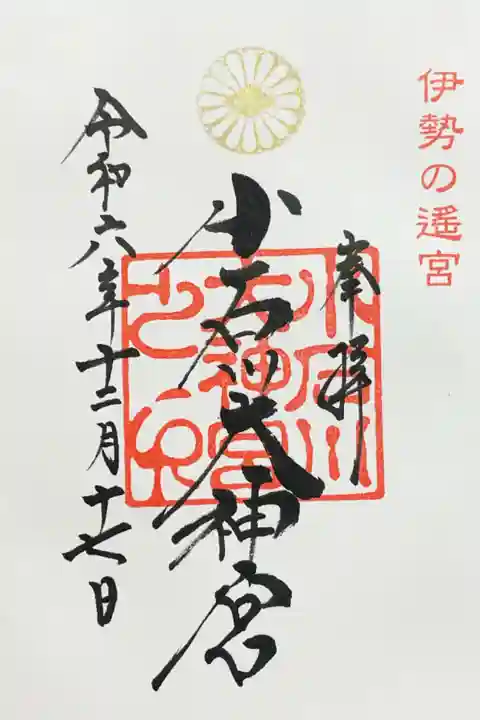 伊勢の遥宮
奉拝
小石川大神宮
小石川
大神宮
之印
令和六年十二月十七日